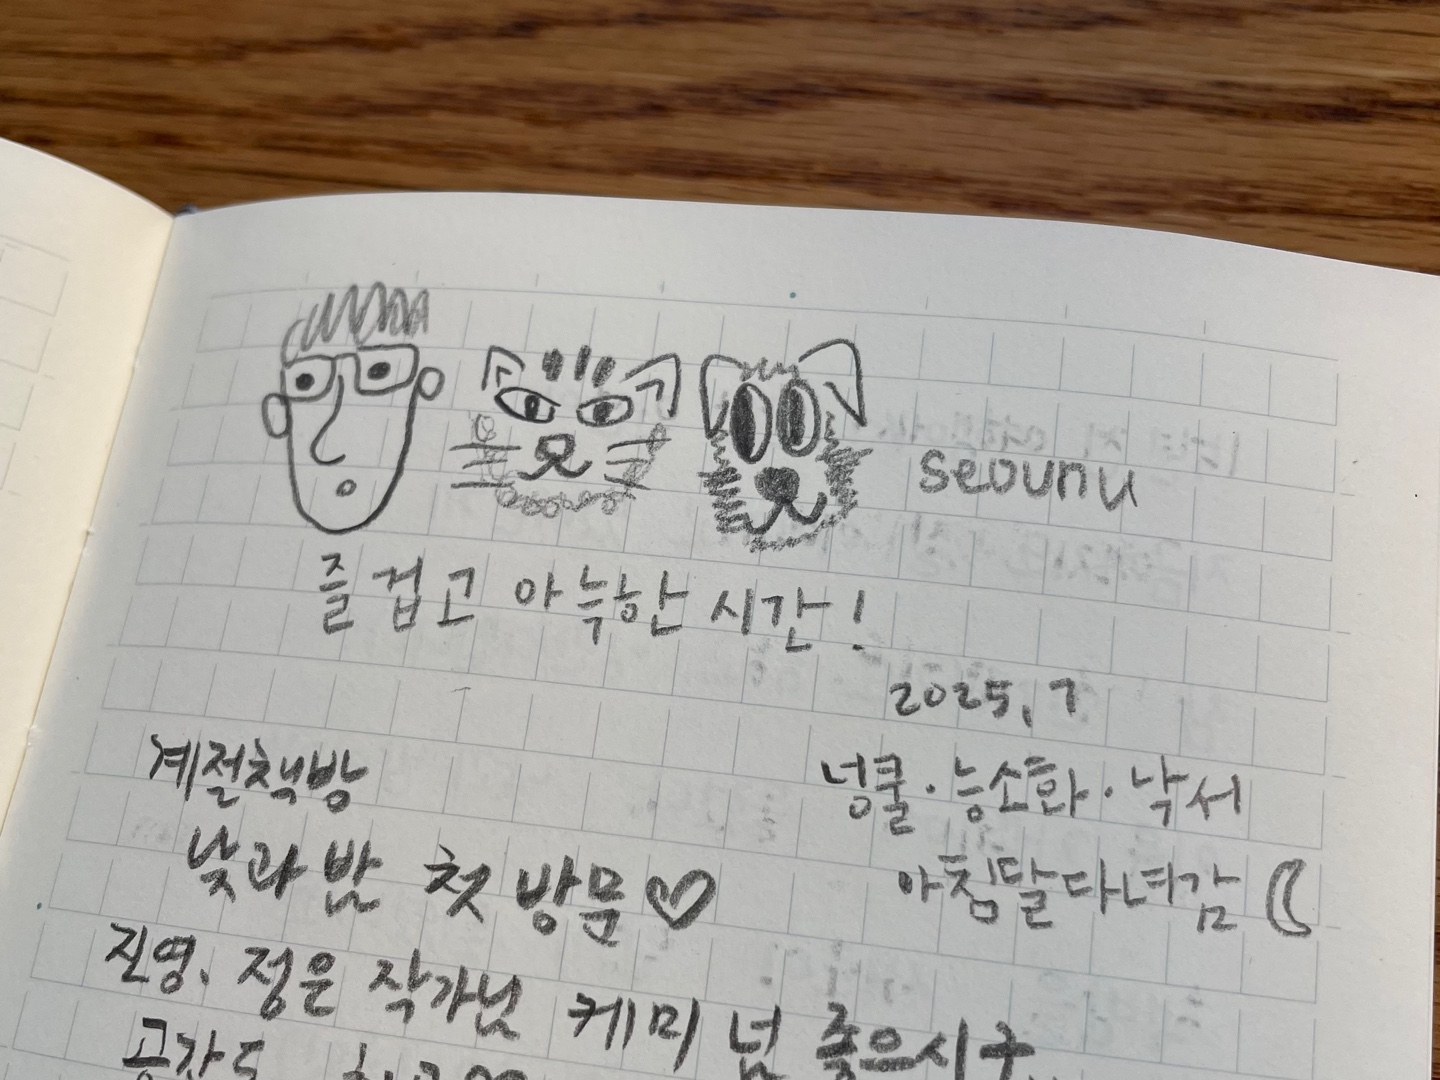 seounu
즐겁고 아늑한 시간!
2025, 7
계절책방
낮과 밤 첫 방문♡
넝쿨·능소화·낙서
아침달 다녀감
진영, 정은 작가님 케미 넘 좋으시구
공간도